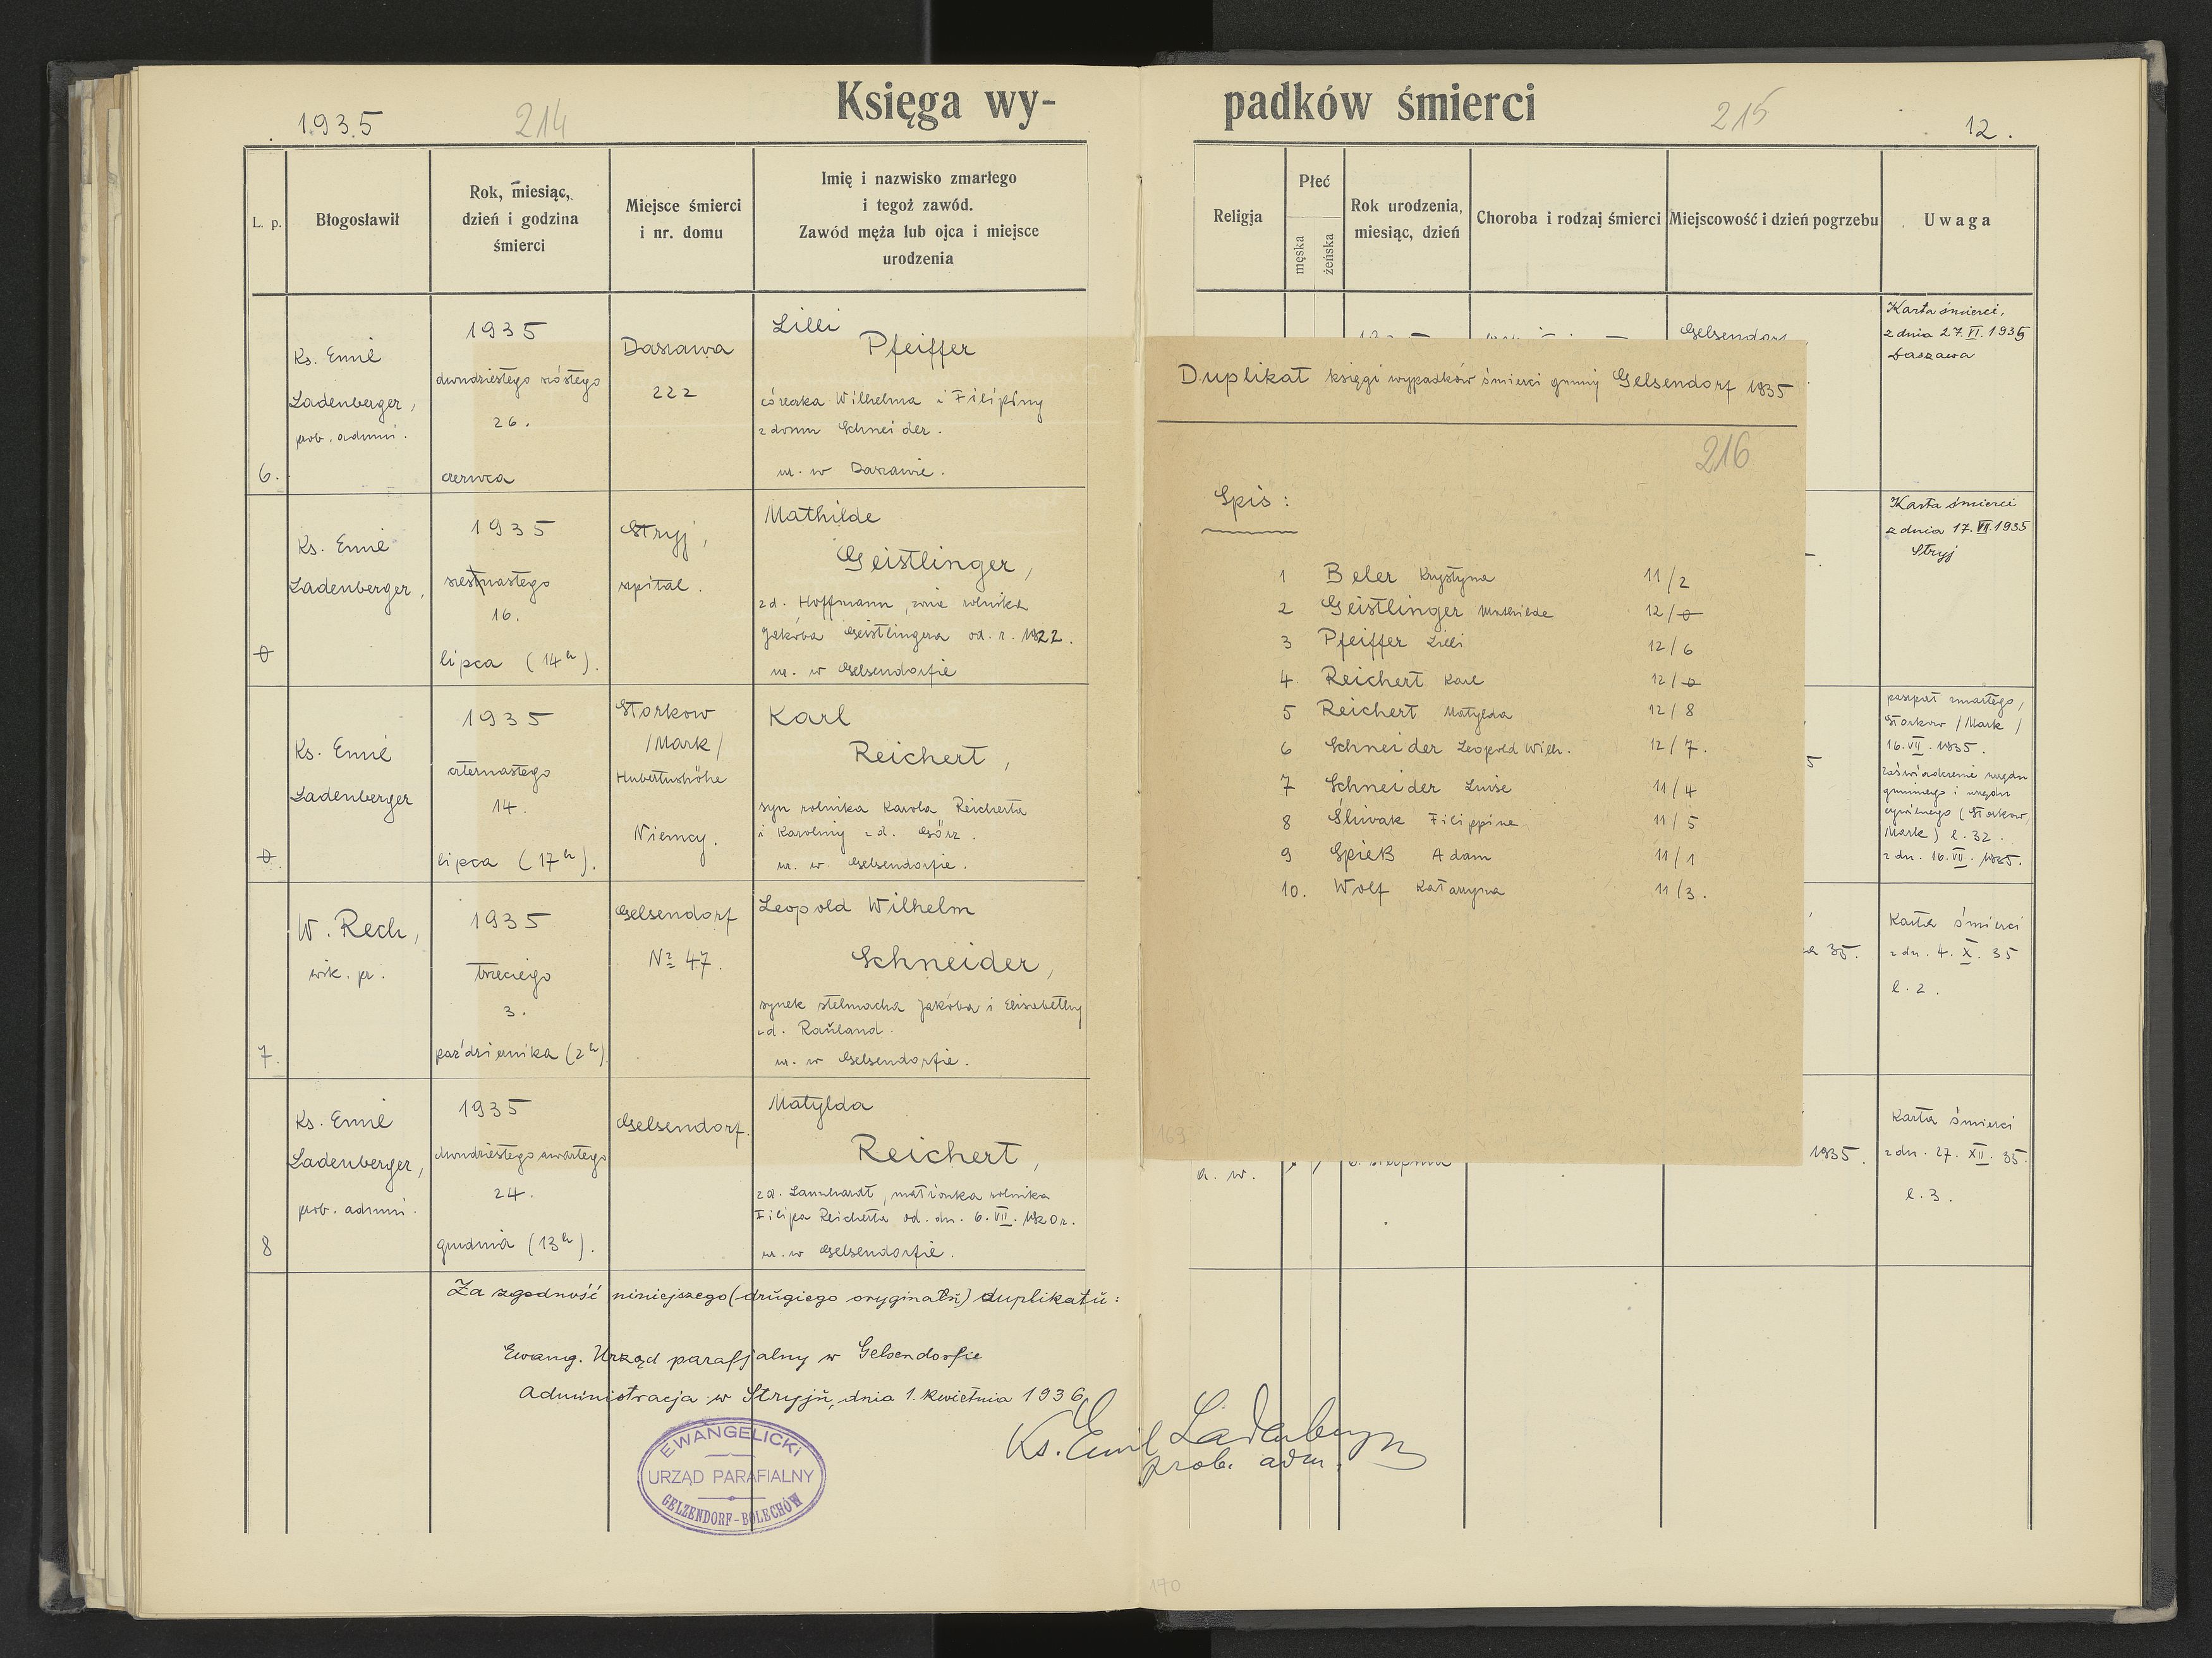 1935
214
Księga wy-
L. p.
Błogosławił
Rok, miesiąc,
dzień i godzina
śmierci
Miejsce śmierci
i nr. domu
Imię i nazwisko zmarłego
i tegoż zawód.
Zawód męża lub ojca i miejsce
urodzenia
6.
Ks. Emil
Ladenberger,
prob. admin.
1935
dwudziestego szóstego
26.
czerwca
Daszawa
222
Lilli
Pfeiffer
córeczka Wilhelma i Filipiny
z domu Schneider.
ur. w Daszawie.
0
Ks. Emil
Ladenberger,
1935
szesnastego
16.
lipca (14h).
Stryj,
szpital.
Mathilde
Geistlinger,
z d. Hoffmann, żona rolnika
Jakóba Geistlingera od. r. 1922.
ur. w Gelsendorfie
0.
Ks. Emil
Ladenberger
1935
czternastego
14.
lipca (17h).
Storkow
/Mark/
Hubertushöhe
Niemcy.
Karl
Reichert,
syn rolnika Karola Reicherta
i Karoliny z d. Görz.
ur. w Gelsendorfie.
7.
W. Rech,
wik. pr.
1935
trzeciego
3.
października (2h).
Gelsendorf
№ 47.
Leopold Wilhelm
Schneider,
synek stelmacha Jakóba i Elisabethy
z d. Rauland.
ur. w Gelsendorfie.
8
Ks. Emil
Ladenberger,
prob. admin.
1935
dwudziestego czwartego
24.
grudnia (13h).
Gelsendorf.
Matylda
Reichert,
z d. Lannhardt, małżonka rolnika
Filipa Reicherta od. dn. 6. VII. 1920 r.
ur. w Gelsendorfie.
Za zgodność niniejszego (drugiego oryginału) duplikatu:
Ewang. Urząd parafjalny w Gelsendorfie
Administracja w Stryju, dnia 1. kwietnia 1936
Ks. Emil Ladenberger
prob. adm.
EWANGELICKI
URZĄD PARAFIALNY
GELZENDORF-BOLECHÓW
padków śmierci
215
12.
Religja
Płeć
męska
żeńska
Rok urodzenia,
miesiąc, dzień
Choroba i rodzaj śmierci
Miejscowość i dzień pogrzebu
Uwaga
Gelsendorf
Karta śmierci,
z dnia 27. VI. 1935
Daszawa
Karta śmierci
z dnia 17. VII. 1935
Stryj
5
paszport zmarłego,
Storkow /Mark/
16. VII. 1935.
zaświadczenie urzędu
gminnego i urzędu
cywilnego (Storkow,
Mark) l. 32.
z dn. 16. VII. 1935.
35.
Karta śmierci
z dn. 4. X. 35
l. 2.
a. w.
sierpnia
1935.
Karta śmierci
z dn. 27. XII. 35.
l. 3.
Duplikat księgi wypadków śmierci gminy Gelsendorf 1935
216
Spis:
1 Beler Krystyna 11/2
2 Geistlinger Mathilde 12/0
3 Pfeiffer Lilli 12/6
4 Reichert Karl 12/0
5 Reichert Matylda 12/8
6 Schneider Leopold Wilh. 12/7.
7 Schneider Luise 11/4
8 Śliwak Filippine 11/5
9 Spieß Adam 11/1
10. Wolf Katarzyna 11/3.
163
170